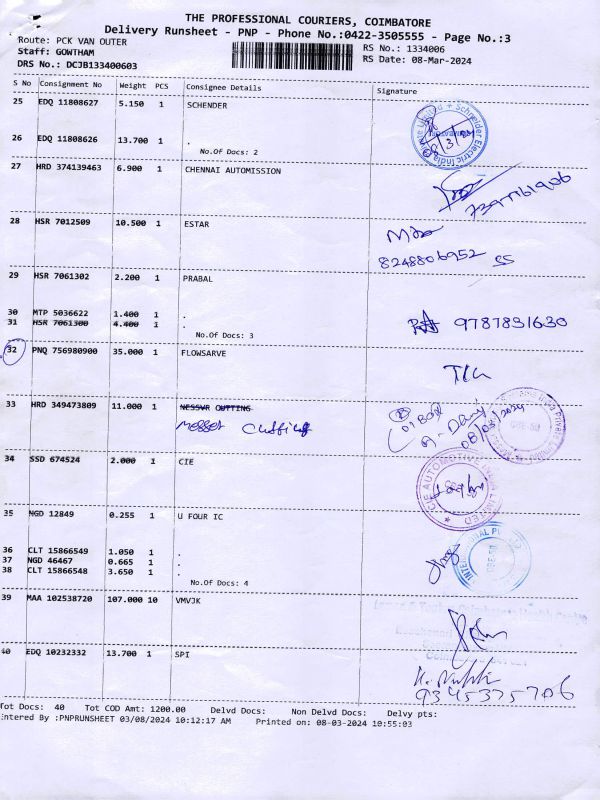 THE PROFESSIONAL COURIERS, COIMBATORE
Delivery Runsheet - PNP - Phone No.:0422-3505555 - Page No.:3
Route: PCK VAN OUTER
RS No.: 1334006
Staff: GOWTHAM
RS Date: 08-Mar-2024
DRS No.: DCJB133400603
S No Consignment No Weight PCS Consignee Details Signature
25 EDQ 11808627 5.150 1 SCHENDER
26 EDQ 11808626 13.700 1 .
No.Of Docs: 2
27 HRD 374139463 6.900 1 CHENNAI AUTOMISSION
28 HSR 7012509 10.500 1 ESTAR
8248806952
29 HSR 7061302 2.200 1 PRABAL
30 MTP 5036622 1.400 1 .
31 HSR 7061300 4.400 1 .
9787891630
No.Of Docs: 3
32 PNQ 756980900 35.000 1 FLOWSARVE
33 HRD 349473809 11.000 1 NESSVR CUTTING
Messer Cutting
08/03/2024
34 SSD 674524 2.000 1 CIE
CIE AUTOMOTIVE INDIA LIMITED
35 NGD 12849 0.255 1 U FOUR IC
36 CLT 15866549 1.050 1 .
37 NGD 46467 0.665 1 .
38 CLT 15866548 3.650 1 .
No.Of Docs: 4
39 MAA 102538720 107.000 10 VMVJK
40 EDQ 10232332 13.700 1 SPI
9345375706
Tot Docs: 40 Tot COD Amt: 1200.00 Delvd Docs: Non Delvd Docs: Delvy pts:
Entered By :PNPRUNSHEET 03/08/2024 10:12:17 AM Printed on: 08-03-2024 10:55:03